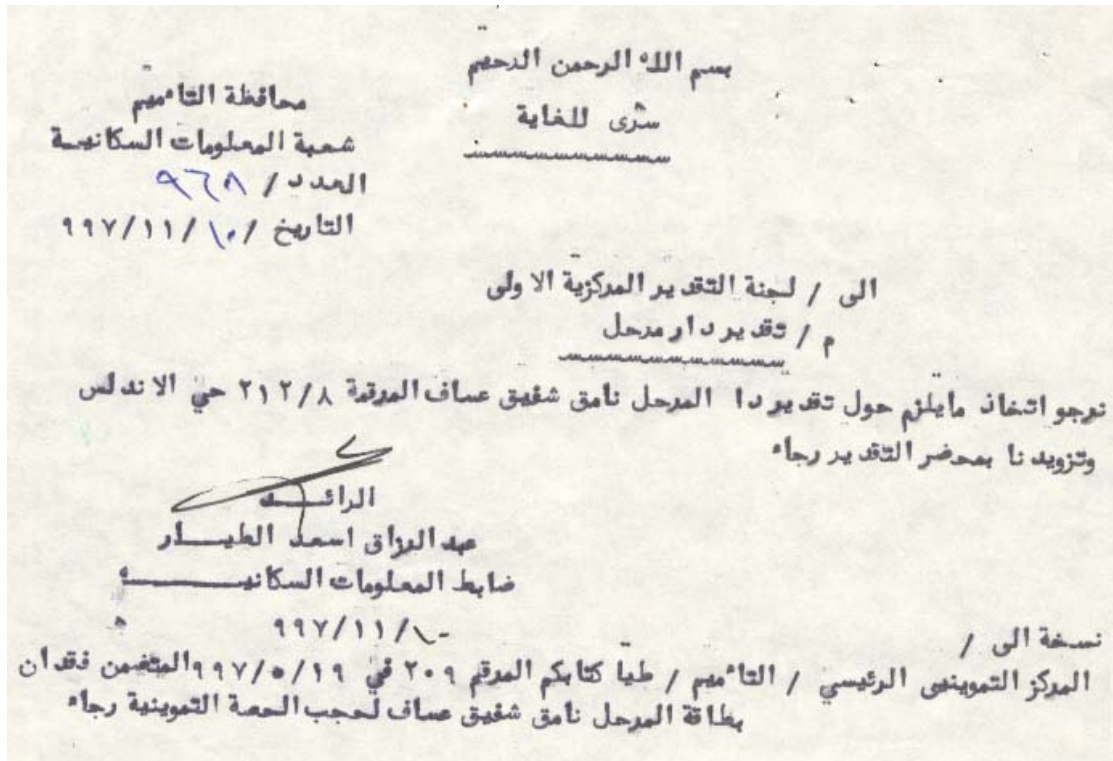 بسم الله الرحمن الرحيم
سري للغاية
محافظة التاميم
شعبة المعلومات السكانيـة
العدد / ٩٦٨
التاريخ / ١٠/ ١١/ ٩٩٧
الى / لجنة التقدير المركزية الاولى
م / تقدير دار مرحل
نرجو اتخاذ مايلزم حول تقدير دا المرحل نامق شفيق عساف المرقمة ٢١٢/٨ حي الاندلس
وتزويدنا بمحضر التقدير رجاء
الرائـــد
عبدالرزاق اسعد الطيـــار
ضابط المعلومات السكانيـــــة
١٠/ ١١/ ٩٩٧
نسخة الى /
المركز التمويني الرئيسي / التاميم / طيا كتابكم المرقم ٢٠٩ في ١٩/ ٥/ ٩٩٧ المتضمن فقدان
بطاقة المرحل نامق شفيق عساف لحجب الحصة التموينية رجاء